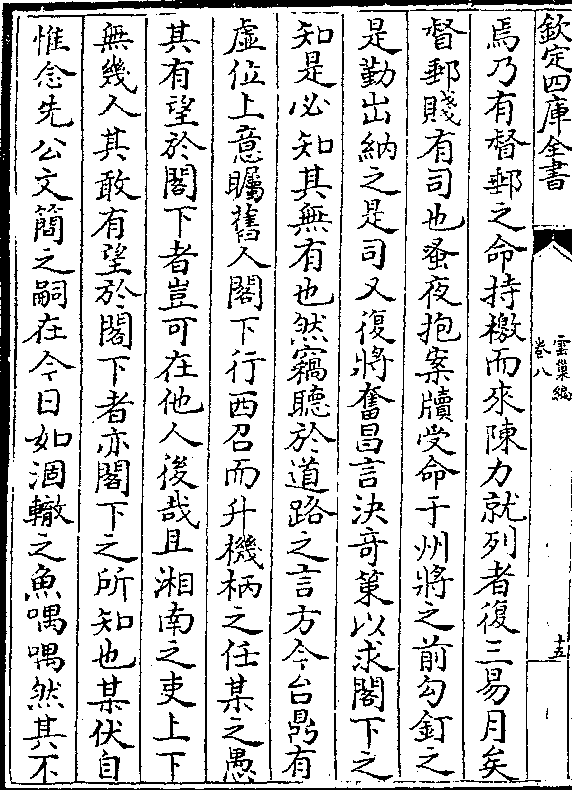 欽定四庫全書
雲巢編
卷八
十五
焉乃有督郵之命持檄而來陳力就列者復三易月矣
督郵賤有司也蚤夜抱案牘受命于州將之前勾釘之
是勤出納之是司又復將奮昌言決竒策以求閣下之
知是必知其無有也然竊聽於道路之言方今台鼎有
虛位上意矚舊人閣下行西召而升機柄之任某之愚
其有望於閣下者豈可在他人後哉且湘南之吏上下
無幾人其敢有望於閣下者亦閣下之所知也某伏自
惟念先公文簡之嗣在今日如涸轍之魚喁喁然其不